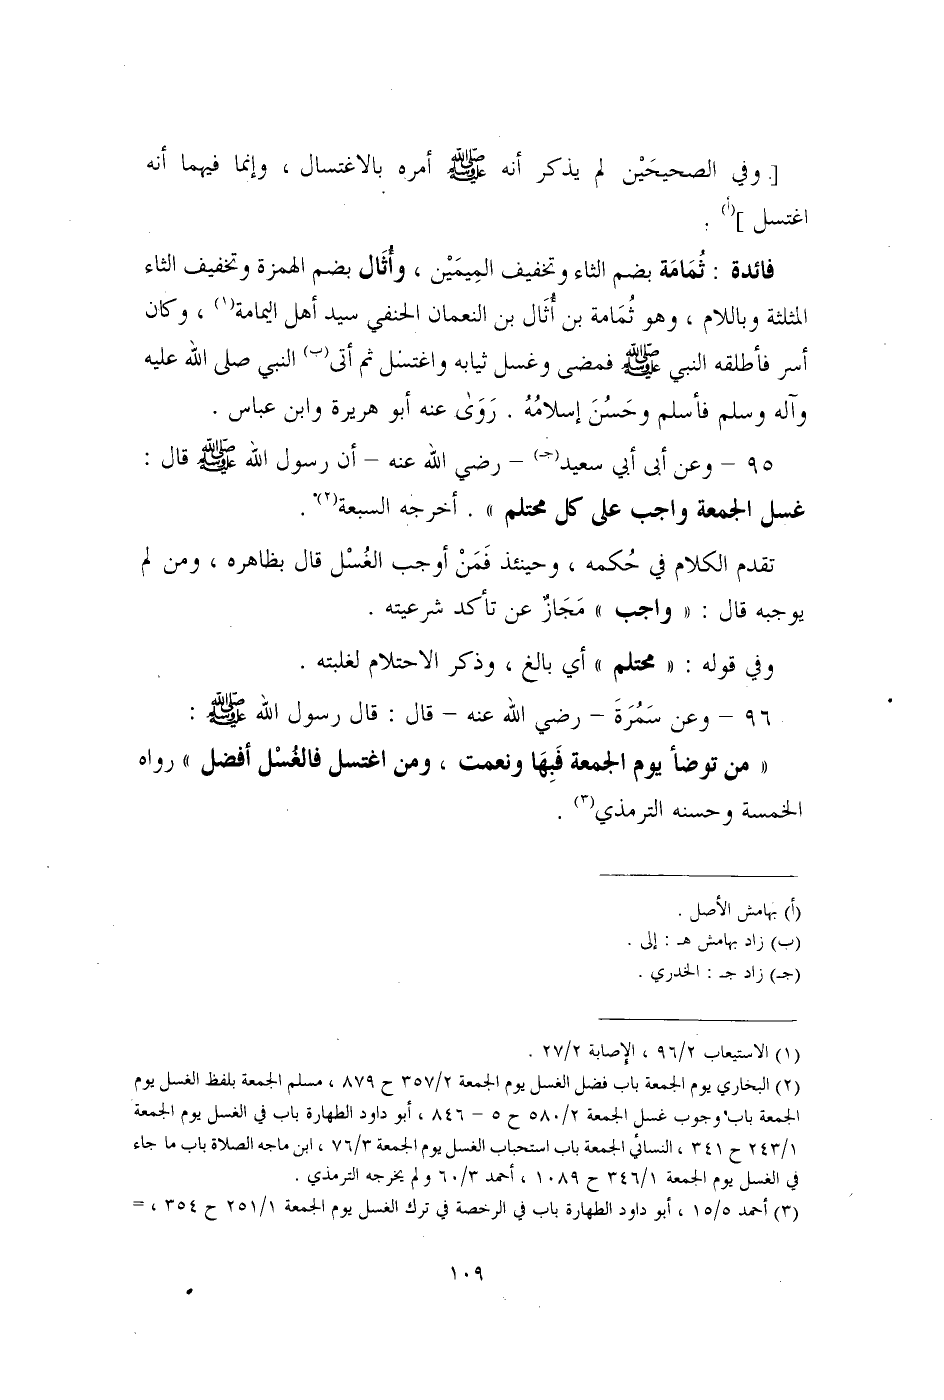 [. وفي الصحيحَيْن لم يذكر أنه ﷺ أمره بالاغتسال ، وإنما فيهما أنه
اغتسل ](أ) .
فائدة : ثُمَامَة بضم الثاء وتخفيف المِيمَيْن ، وأُثَال بضم الهمزة وتخفيف الثاء
المثلثة وباللام ، وهو ثُمَامة بن أُثَال بن النعمان الحنفي سيد أهل اليمامة(١) ، وكان
أسر فأطلقه النبي ﷺ فمضى وغسل ثيابه واغتسل ثم أتى(ب) النبي صلى الله عليه
وآله وسلم فأسلم وحَسُنَ إسلامُهُ . رَوَىٰ عنه أبو هريرة وابن عباس .
٩٥ – وعن أبى أبي سعيد(جـ) – رضي الله عنه – أن رسول الله ﷺ قال :
غسل الجمعة واجب على كل محتلم » . أخرجه السبعة(٢) .
تقدم الكلام في حُكمه ، وحينئذ فَمَنْ أوجب الغُسْل قال بظاهره ، ومن لم
يوجبه قال : « واجب » مَجَازٌ عن تأكد شرعيته .
وفي قوله : « محتلم » أي بالغ ، وذكر الاحتلام لغلبته .
٩٦ – وعن سَمُرَةَ – رضي الله عنه – قال : قال رسول الله ﷺ :
« من توضأ يوم الجمعة فَبِهَا ونعمت ، ومن اغتسل فالغُسْل أفضل » رواه
الخمسة وحسنه الترمذي(٣) .
(أ) بهامش الأصل .
(ب) زاد بهامش هـ : إلى .
(جـ) زاد جـ : الخدري .
(١) الاستيعاب ٩٦/٢ ، الإصابة ٢٧/٢ .
(٢) البخاري يوم الجمعة باب فضل الغسل يوم الجمعة ٣٥٧/٢ ح ٨٧٩ ، مسلم الجمعة بلفظ الغسل يوم
الجمعة باب وجوب غسل الجمعة ٥٨٠/٢ ح ٥ – ٨٤٦ ، أبو داود الطهارة باب في الغسل يوم الجمعة
٢٤٣/١ ح ٣٤١ ، النسائي الجمعة باب استحباب الغسل يوم الجمعة ٧٦/٣ ، ابن ماجه الصلاة باب ما جاء
في الغسل يوم الجمعة ٣٤٦/١ ح ١٠٨٩ ، أحمد ٦٠/٣ ولم يخرجه الترمذي .
(٣) أحمد ١٥/٥ ، أبو داود الطهارة باب في الرخصة في ترك الغسل يوم الجمعة ٢٥١/١ ح ٣٥٤ ، =
١٠٩